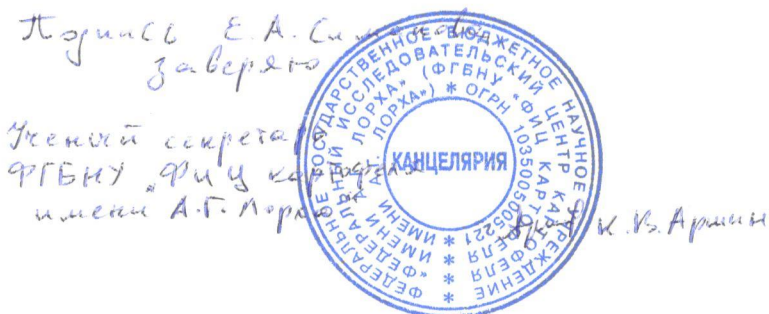 Подпись Е.А. Симакова
заверяю
Ученый секретарь
ФГБНУ "ФИЦ картофеля
имени А.Г. Лорха"
К.В. Аршин
ФЕДЕРАЛЬНОЕ ГОСУДАРСТВЕННОЕ БЮДЖЕТНОЕ НАУЧНОЕ УЧРЕЖДЕНИЕ
"ФЕДЕРАЛЬНЫЙ ИССЛЕДОВАТЕЛЬСКИЙ ЦЕНТР КАРТОФЕЛЯ
ИМЕНИ А.Г. ЛОРХА" (ФГБНУ "ФИЦ КАРТОФЕЛЯ
ИМЕНИ А.Г. ЛОРХА") * ОГРН 1035005005221 *
КАНЦЕЛЯРИЯ